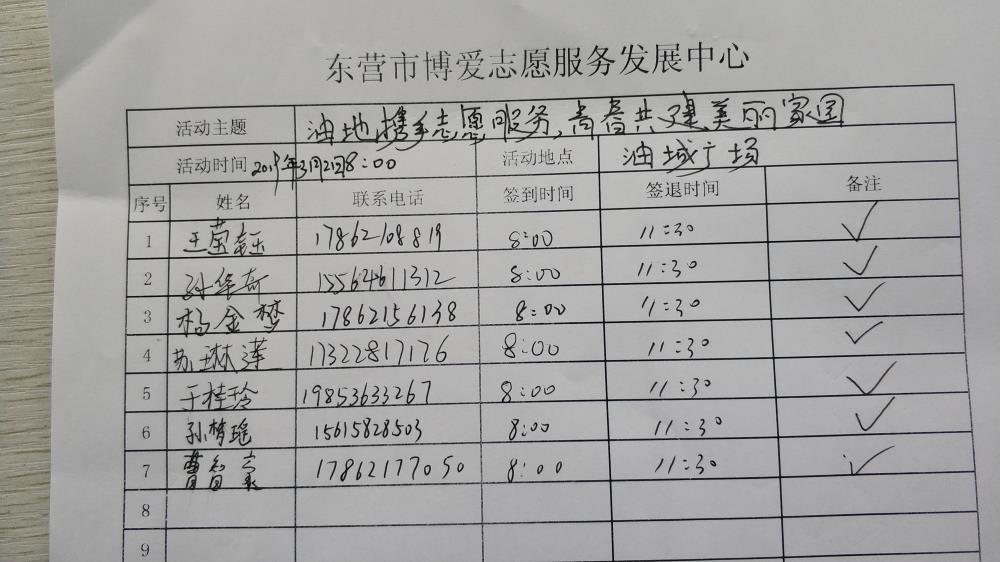 东营市博爱志愿服务发展中心
活动主题 油地携手志愿服务,青春共建美丽家园
活动时间 2019年3月2日8:00 活动地点 油城广场
序号 姓名 联系电话 签到时间 签退时间 备注
1 王莹钰 17862108819 8:00 11:30 ✓
2 孙华奇 15564611312 8:00 11:30 ✓
3 杨金梦 17862156138 8:00 11:30 ✓
4 苏琳莲 17322817176 8:00 11:30 ✓
5 于桂玲 19853633267 8:00 11:30 ✓
6 孙梦瑶 15615828503 8:00 11:30 ✓
7 曹智豪 17862177050 8:00 11:30 ✓
8
9